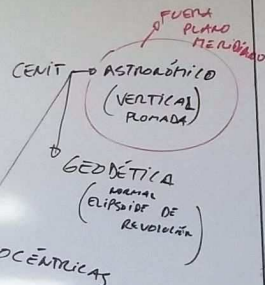 FUERA
PLANO
MERIDIANO
CENIT
ASTRONÓMICO
(VERTICAL
PLOMADA)
GEODÉTICA
(NORMAL
ELIPSOIDE DE
REVOLUCIÓN)
OCÉNTRICAS